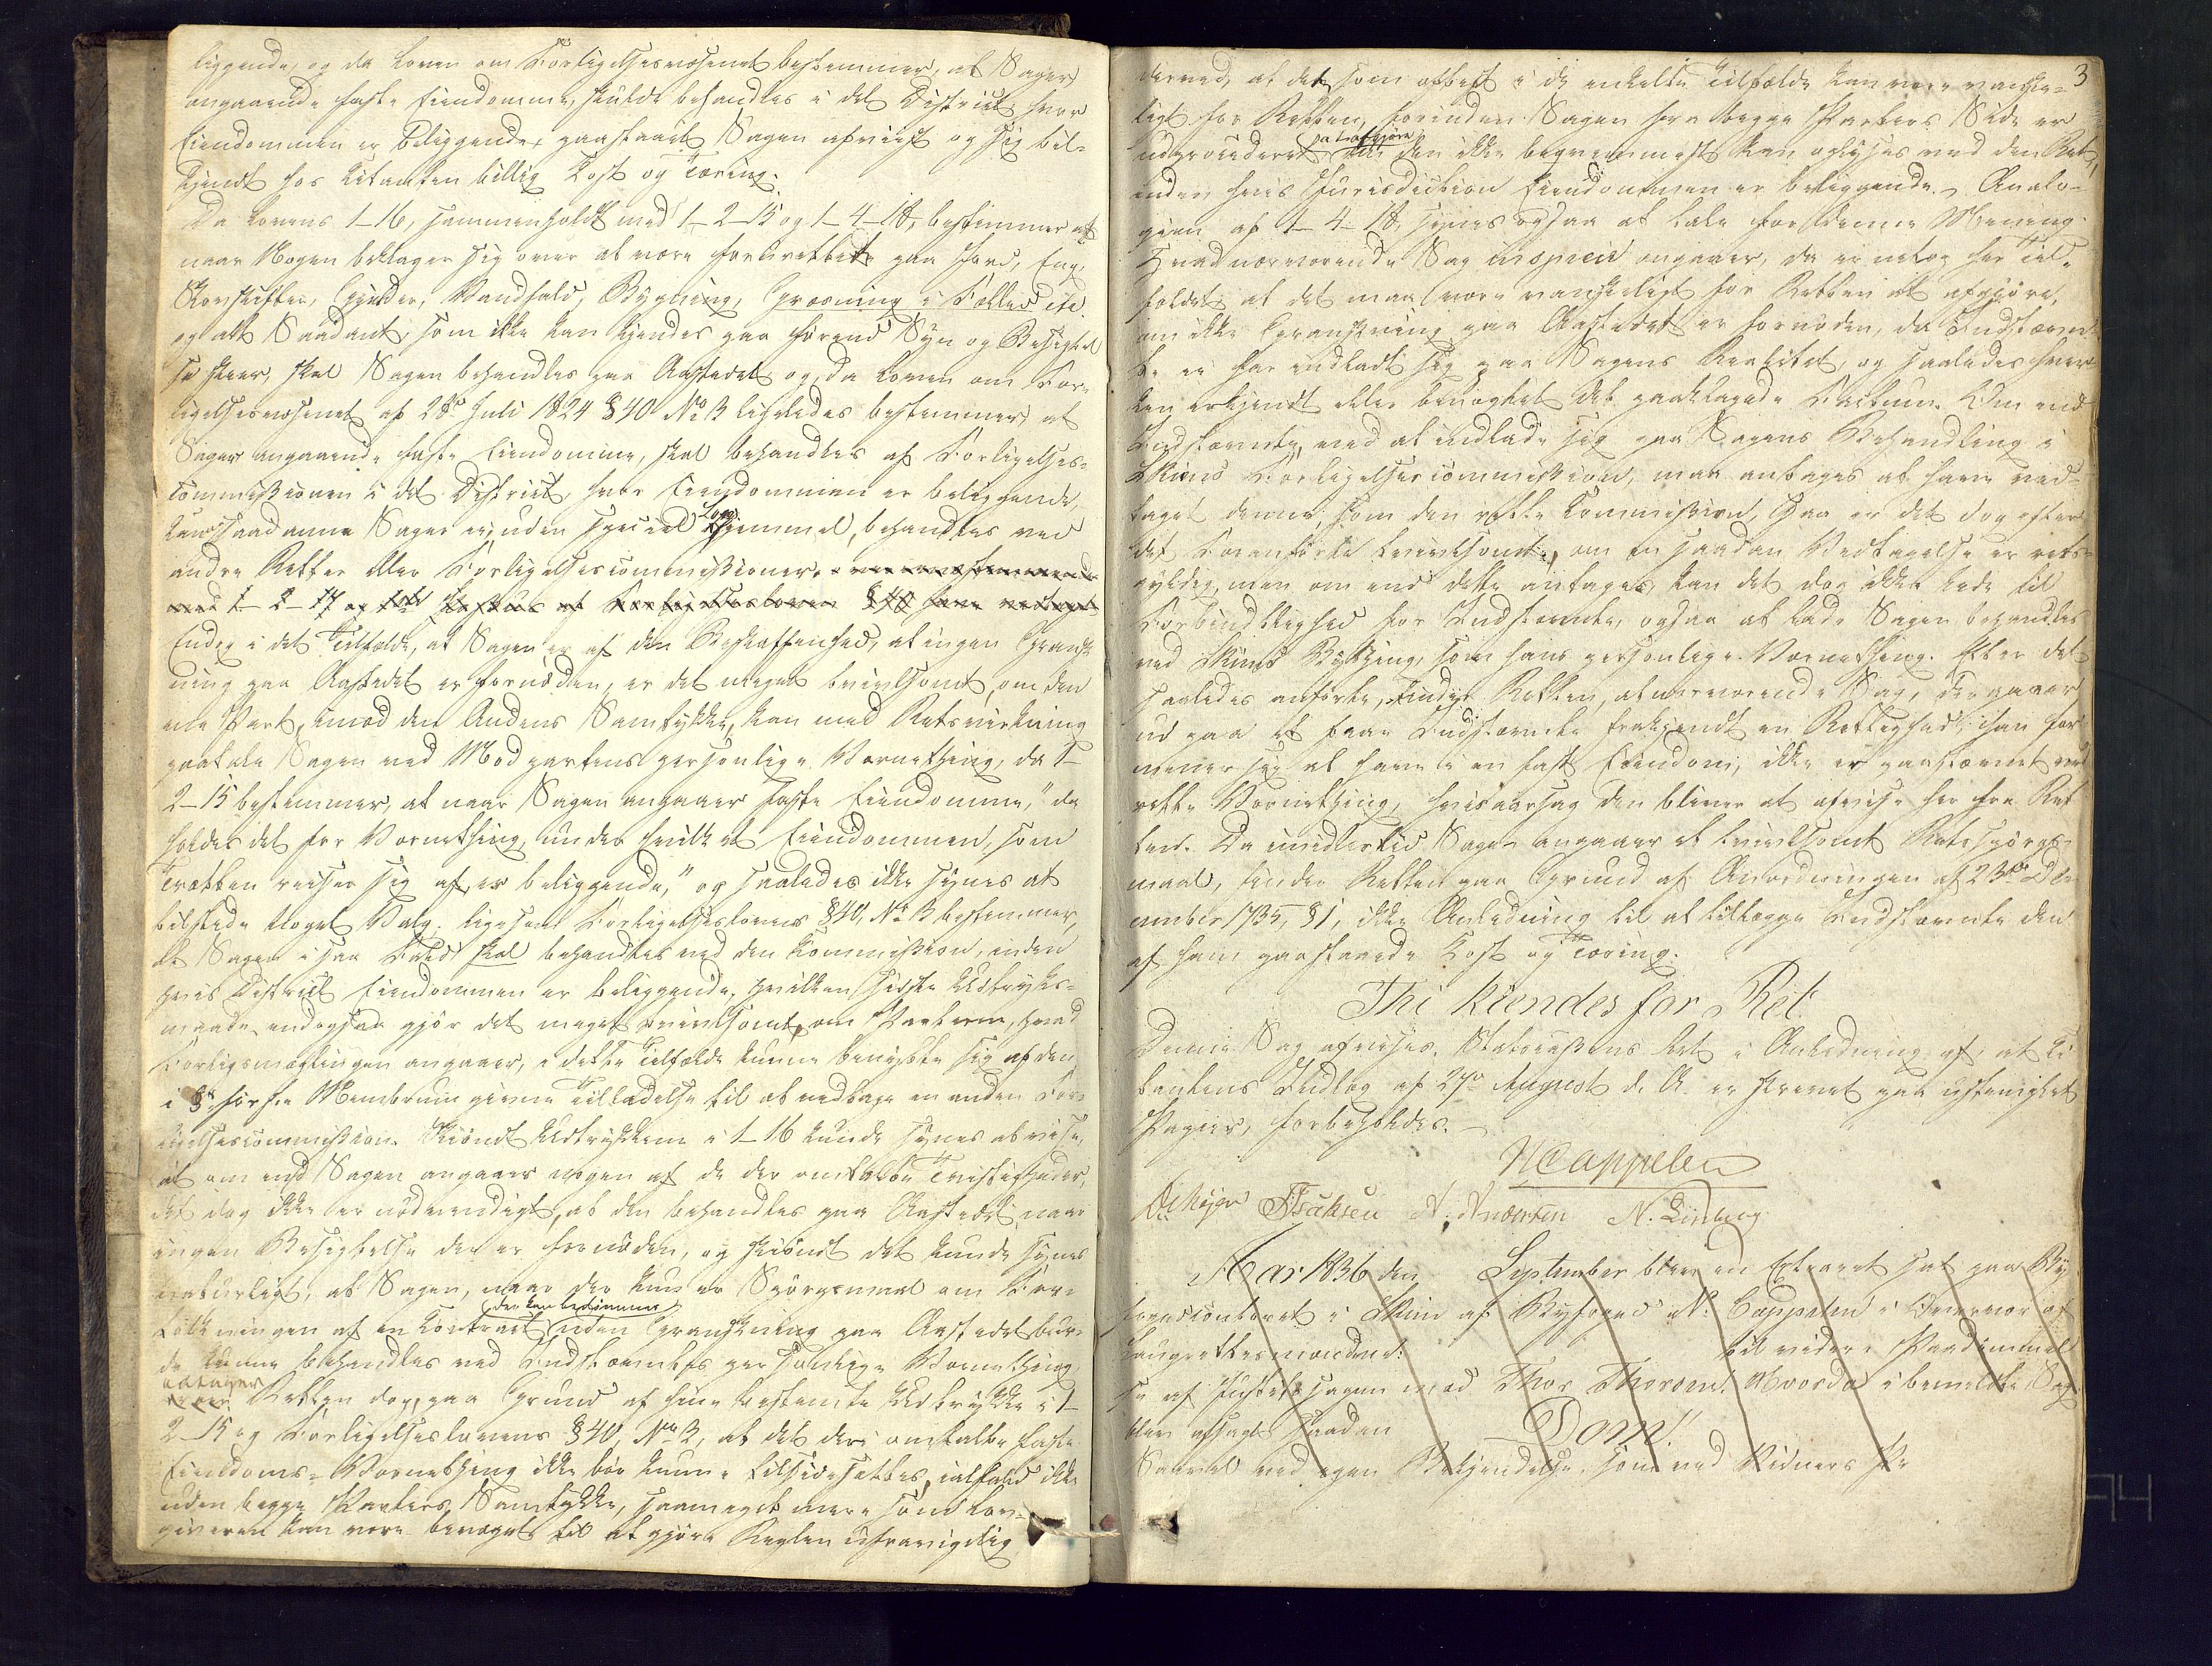 liggende, og da Loven om Forligelsesvæsenet bestemmer, at Sager
angaaende faste Eiendomme, skulde behandles i det District hvor
Eiendommen er beliggende, paastaaet Sagen afviist og sig til-
kjendt hos Citanten billig Kost og Tæring.
Da Lovens 1-16, sammenholdt med 1-2-15 og 1-4-18, bestemmer at
naar Nogen beklager sig over at være forurettet paa Jord, Eng,
Skovskifter, Gjerder, Vandfald, Bygning, Græsning i Fælled etc.
og alt Saadant, som ikke kan kjendes paa førend Syn og Besigtel
se skeer, skal Sagen behandles paa Aastedet, og da Loven om For-
ligelsesvæsenet af 20de Juli 1824 § 40 No 3 ligeledes bestemmer, at
Sager angaaende faste Eiendomme, skal behandles af Forligelses-
Commissionen i det District, hvor Eiendommen er beliggende,
kan saadanne Sager ei, uden speciel Lov Hjemmel, behandles ved
andre Retter eller Forligelsescommissioner.
Endog i det Tilfælde, at Sagen er af den Beskaffenhed, at ingen Gransk
ning paa Aastedet er fornøden, er det meget tvivlsomt, om den
ene Part, imod den Andens Samtykke, kan med Retsvirkning
paatale Sagen ved Modpartens personlige Værnething, da 1-
2-15 bestemmer, at naar Sagen angaaer faste Eiendomme, "da
holdes det for Værnething, under hvilket Eiendommen, som
Trætten reiser sig af, er beliggende," og saaledes ikke synes at
tilstede noget Valg, ligesom Forligelseslovens § 40, No 3 bestemmer,
at Sagen i saa Fald skal behandles ved den Commission, inden
hvis District Eiendommen er beliggende, hvilken sidste Udtryks-
maade endogsaa gjør det meget tvivlsomt, om Parterne, hvad
Forligsmæglingen angaaer, i dette Tilfælde kunne benytte sig af den
i §s første Membrum givne Tilladelse til at vedtage en anden For-
ligelsescommission. Skiøndt Udtrykkene i 1-16 kunde synes at vise,
at om end Sagen angaaer nogen af de der omtalte Tvistigheder,
det dog ikke er nødvendigt, at den behandles paa Aastedet, naar
ingen Besigtelse der er fornøden, og skiøndt det kunde synes
naturligt, at Sagen, naar der kun er Spørgsmaal om For-
tolkningen af en Contract (der kan bedømmes) uden Granskning paa Aastedet, bur-
de kunne behandles ved Indstævntes personlige Værnething,
antager Retten dog, paa Grund af hine bestemte Udtrykke i 1-
2-15 og Forligelseslovens § 40, No 3, at det deri omtalte faste
Eiendoms-Værnething ikke bør kunne tilsidesættes, ialfald ikke
uden begge Parters Samtykke, saameget mere som Lov-
giveren kan være bevæget til at gjøre Reglen ufravigelig
3
derved, at det som oftest i de enkelte Tilfælde kan være vanske-
ligt for Retten, forinden Sagen fra begge Parters Side er
udprocederet, at afgjøre om den ikke beqvemmest kan oplyses ved den Ret,
inden hvis Jurisdiction Eiendommen er beliggende. Analo-
gien af 1-4-18, synes ogsaa at tale for denne Mening.
Hvad nærværende Sag in specie angaaer, da er netop her Til-
fældet, at det maa være vanskeligt for Retten at afgiøre,
om ikke Granskning paa Aastedet er fornøden, da Indstævn-
te ei har indladt sig paa Sagens Realitet, og saaledes hver-
ken erkjendt eller benægtet det paaklagede Factum. Om end
Indstævnte, ved at indlade sig paa Sagens Behandling i
Skiens Forligelsescommission, maa antages at have ved-
taget denne, som den rette Commission, saa er det dog efter
det Foranførte tvivlsomt, om en saadan Vedtagelse er rets-
gyldig, men om end dette antages, kan det dog ikke lede til
Forbindtlighed for Indstævnte, ogsaa at lade Sagen behandles
ved Skiens Bything, som hans personlige Værnething. Efter det
saaledes anførte, finder Retten, at nærværende Sag, der gaaer
ud paa at faae Indstævnte frakjendt en Rettighed, han for-
mener sig at have i en fast Eiendom, ikke er paastævnet ved
rette Værnething, hvisaarsag den bliver at afvise her fra Ret
ten. Da imidlertid Sagen angaaer et tvivlsomt Retsspørgs-
maal, finder Retten paa Grund af Anordningen af 23de De-
cember 1735, § 1, ikke Anledning til at tillægge Indstævnte den
af ham paastaaede Kost og Tæring.
Thi kiendes for Ret:
Denne Sag afvises. Statscassens Ret i Anledning af, at Ci-
tantens Indlæg af 27de August d. A. er skrevet paa ustemplet
Papir, forbeholdes.
N Cappelen
Isaksen N. Knudsen N. Linberg
Aar 1836 den September blev en Extraret sat paa By
fogedcontoret i Skien af Byfoged N. Cappelen i Overvær af
Laugrettesmændene: til videre Paadømmel
se af Justitssagen mod Thor Thorsen Aavorda i bemeldte Sag
blev afsagt saadan
Dom:
Saavel ved egen Bekjendelse, som ved Vidners Pr